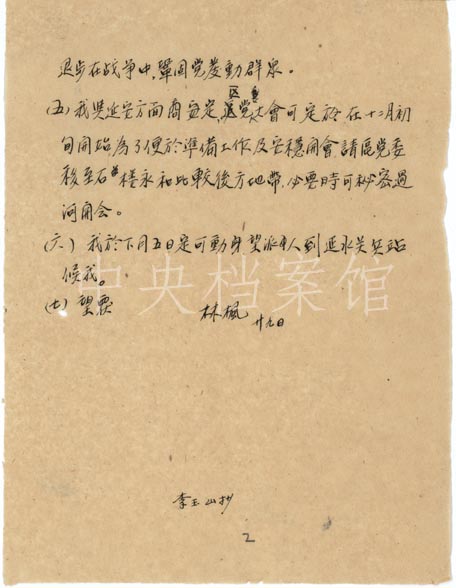 退步在战争中,鞏固党发動群众。
区
(五)我與延安方面商妥定,党大會可定於在十二月初
旬開始,為了便於準備工作及安穩開會請區党委
移至石樓永和比較後方地帶,必要時可秘密過
河開会。
(六)我於下月五日定可動身望派人到延水关兵站
候我。
(七)望要
林楓
廿九日
中央档案馆
李玉山抄
2